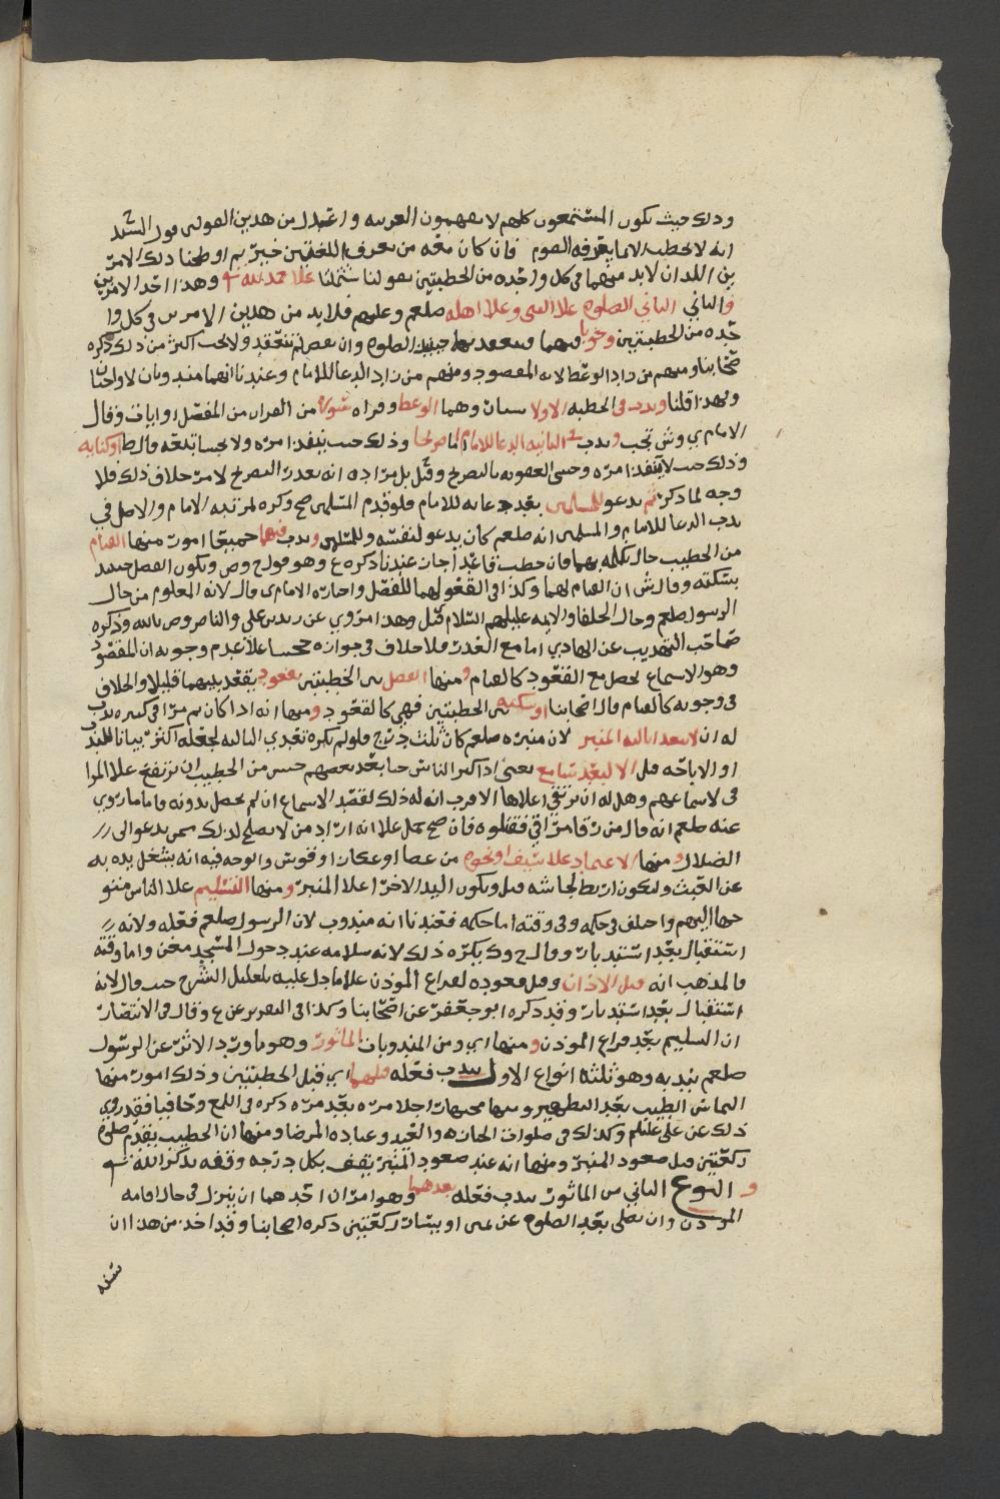 وذلك حيث يكون المستمعون كلهم لا يفهمون العربيه واعتدل من هدين القولين قول السيد ح
انه لا يخطب الا بما يعرفه القوم فان كان معه من يعرف اللغتين خير بينهم
بن اللدان لابد منهما في كل واحده من الخطبتين بقولنا شتملتا علا حمد الله وهذا احد الامرين
والثاني الثاني الصلوه علا النبي وعلا اهله صلعم وعليهم فلا بد من هدين الامرين في كل وا
حده من الخطبتين وجوبا فيهما الصلوه وان بعض لم تنعقد ولا يجب اكثر من ذلك ذكره
صحابنا ومنهم من زاد الوعظ لانه المقصود ومنهم من زاد الدعا للامام وعندنا انهما مندوبان لا واجبان
ولهذا قلنا وندب في الخطبه الاولا شيان وهما الوعظ وقراه سورة من القران من المفصل او ايات وقال
الامام ي وش تجب وندب في الثانيه الدعا للامام اما صريحا وذلك حيث ينفذ امره ولا يحسا تبعه والا او كنايه
وذلك حيث لا ينفذ امره وخشي العقوبه بالتصريح وقيل بل مراده انه يعدر التصريح لامر خلاف ذلك فلا
وجه لما ذكر ثم يدعو للمسلمين بعد دعائه للامام فلو قدم المسلمين صح وكره لمرتبه الامام والاصل في
ندب الدعا للامام والمسلمين انه صلعم كان يدعو لنفسه وللمسلمين وندب فيهما جميعا امور منها القيام
من الخطيب حال تكلمه بهما فان خطب قاعدا جاز عندنا ذكره ع وهو قول ح وص ويكون الفصل حينئذ
بسكته وقال ش ان القيام لهما وكذا في القعود لهما للفصل واختاره الامام ي قال لانه المعلوم من حال
الرسول صلعم وحال الخلفا والايمه عليهم السلام قيل وهذا مروي عن زيد بن علي والناصر وص بالله وذكره
صاحب التهذيب عن الهادي اما مع العذر فلا خلاف في جوازه علا عدم وجوبه ان المقصود
وهو الاسماع يحصل مع القعود كالقيام ومنها الفصل بين الخطبتين بقعود يقعد بينهما قليلا والخلاف
في وجوبه كالقيام قال اصحابنا او سكته بين الخطبتين فهي كالقعود ومنها انه اذا كان ثم مراقي كثيره ندب
له ان لا يتعدا ثالثه المنبر لان منبره صلعم كان ثلث درج فلو لم يكره تعدي الثالثه لجعله اكثر بيانا للندب
او الاباحه قيل الا لبعد سامع يعني اذا كثر الناس حتا بعد بعضهم حسن من الخطيب ان يرتفع علا المرا
قي لاسماعهم وهل له ان يرتقي اعلاها الاقرب انه له ذلك لقصد الاسماع ان لم يحصل بدونه واما ما روي
عنه صلعم انه قال من رقا مراقي فقتلوه فان صح حمل علا انه اراد من لا يصلح لذلك ممن يدعو الى
الضلال ومنها الاعتماد علا سيف او نحوه من عصا او عكاز او قوس والوجه فيه انه يشغل يده به
عن العبث وليكون اربط لجاشه قيل ويكون اليد الاخرا علا المنبر ومنها التسليم علا الناس متو
جها اليهم واختلف في حكمه وفي وقته اما حكمه فعندنا انه مندوب لان الرسول صلعم فعله ولانه
استقبال بعد استدبار وقال ح وك يكره ذلك لانه سلامه عند دخول المسجد مغن واما وقته
فالمذهب انه قبل الاذان وقيل قعوده لفراغ المؤذن علا ما دل عليه تعليل الشرح حيث قال لانه
استقبال بعد استدبار وقد ذكره ابو جعفر عن اصحابنا وكذا في التقرير عن ع وقال في الانتصار
ان التسليم بعد فراغ المؤذن ومنها اي ومن المندوبات الماثور وهو ما ورد الاثر عن الرسول
صلعم بندبه وهو ثلثه انواع الاول يندب فعله قبلهما اي قبل الخطبتين وذلك امور منها
التماس الطيب بعد التطهير ومنها مره بعد مره ذكره في اللمع وحافيا فقد روي
ذلك عن علي عليلم وكذلك في صلوات الجنازه والعيد وعياده المرضا ومنها ان الخطيب يقدم صلوه
ركعتين قبل صعود المنبر ومنها انه عند صعود المنبر يقف بكل درجه وقفه يذكر الله
والنوع الثاني من الماثور يندب فعله بعدهما وهو امران احدهما ان ينزل في حال اقامه
المؤذن وان يصلي بعد الصلوه عن يمين او يسار ركعتين ذكره اصحابنا وقد اخذ من هذا ان